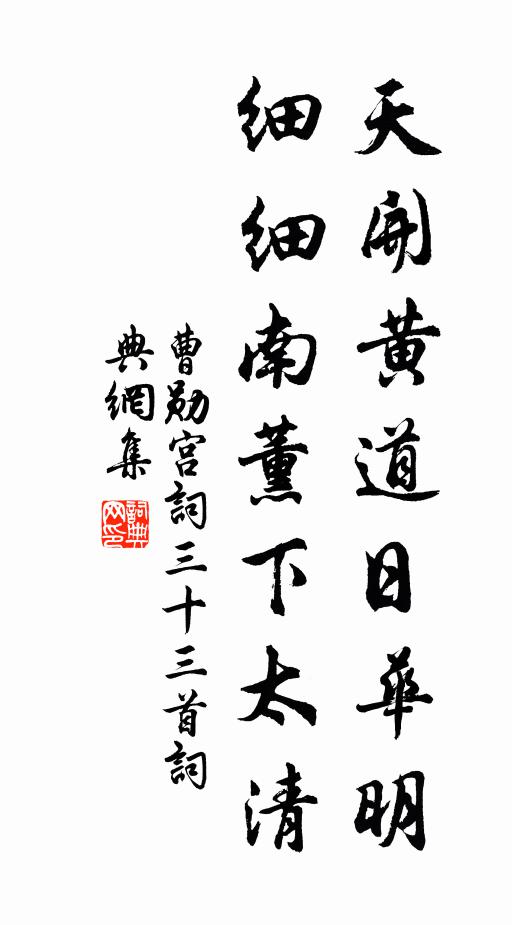 天開黄道日華明
細細南薰下太清
曹勛宫詞三十三首詞
典網集
詞典网印